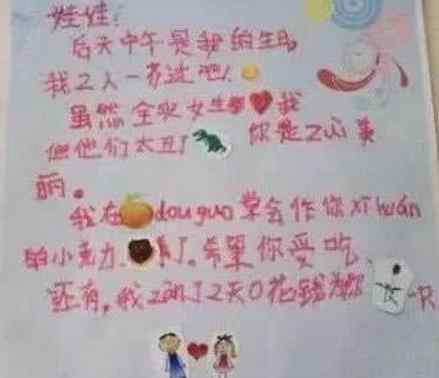 娃娃：
后天中午是我的生日
我2人一齐过吧！
虽然全班女生都❤我
但他们太丑了 你是之心美
丽。
我在 douguo 学会作你 xǐ huán
的小 力 了。希望你爱吃
还有，我 了2天0花钱为你 一只